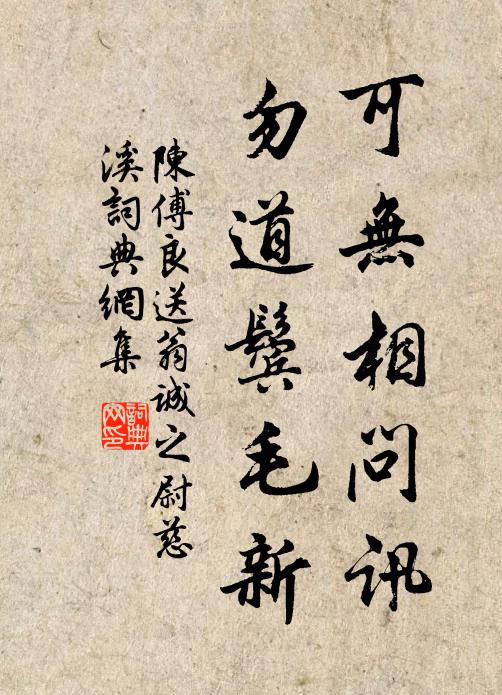 可無相問訊
勿道鬢毛新
陳傅良送翁誠之尉慈
溪詞典網集
詞典網印